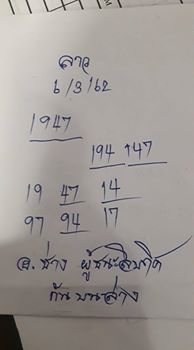 ลาว
6/3/62
1947
194 147
19 47 14
97 94 17
อ.ช้าง ผู้ชนะสิบทิศ
กันบนล่าง